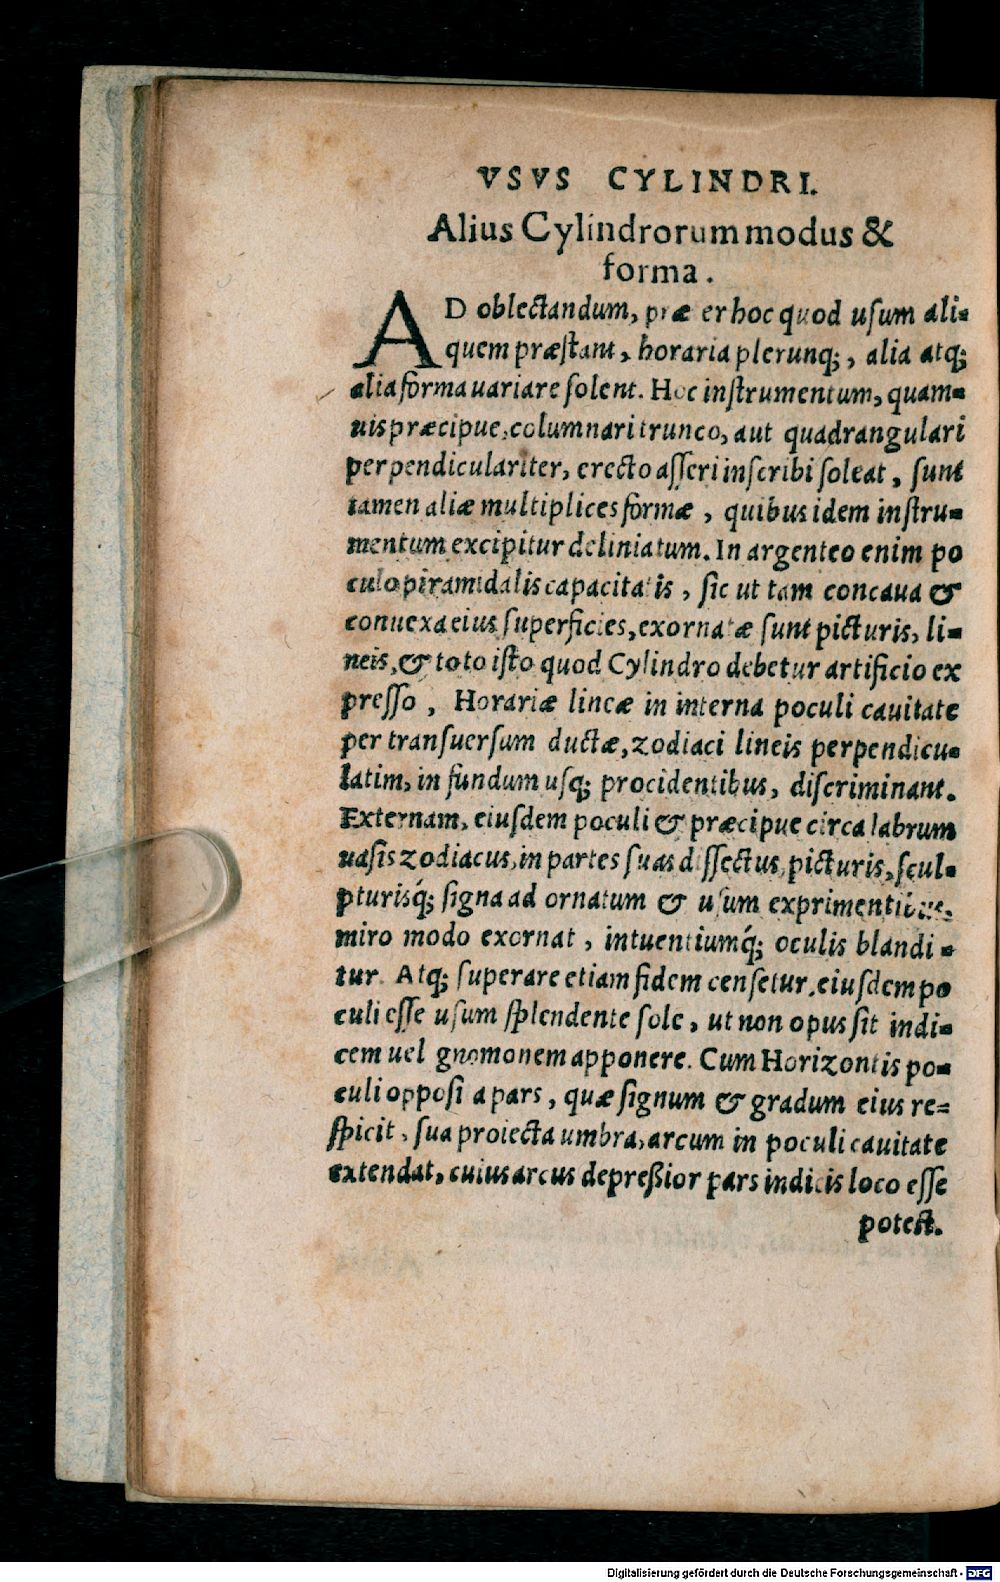 VSVS CYLINDRI.
Alius Cylindrorum modus &
forma.
AD oblectandum, præ er hoc quod uſum ali-
quem præſtant, horaria plerunq;, alia atq;
alia forma uariare ſolent. Hoc inſtrumentum, quam-
uis præcipue, columnari trunco, aut quadrangulari
perpendiculariter, erecto aſſeri inſcribi ſoleat, ſunt
tamen aliæ multiplices formæ, quibus idem inſtru-
mentum excipitur deliniatum. In argenteo enim po
culo piramidalis capacitatis, ſic ut tam concaua &
conuexa eius ſuperficies, exornatæ ſunt picturis, li-
neis, & toto iſto quod Cylindro debetur artificio ex
preſſo, Horariæ lineæ in interna poculi cauitate
per transuerſum ductæ, zodiaci lineis perpendicu-
latim, in fundum uſq; procidentibus, diſcriminant.
Externam, eiuſdem poculi & præcipue circa labrum
uaſis zodiacus, in partes ſuas diſſectus, picturis, ſcul-
pturisq́; ſigna ad ornatum & uſum exprimentibus,
miro modo exornat, intuentiumq́; oculis blandi-
tur. Atq; ſuperare etiam fidem cenſetur, eiuſdem po
culi eſſe uſum ſplendente ſole, ut non opus ſit indi-
cem uel gnomonem apponere. Cum Horizontis po-
culi oppoſi a pars, quæ ſignum & gradum eius re-
ſpicit, ſua proiecta umbra, arcum in poculi cauitate
extendat, cuius arcus depreßior pars indicis loco eſſe
poteſt.
Digitalisierung gefördert durch die Deutsche Forschungsgemeinschaft - DFG